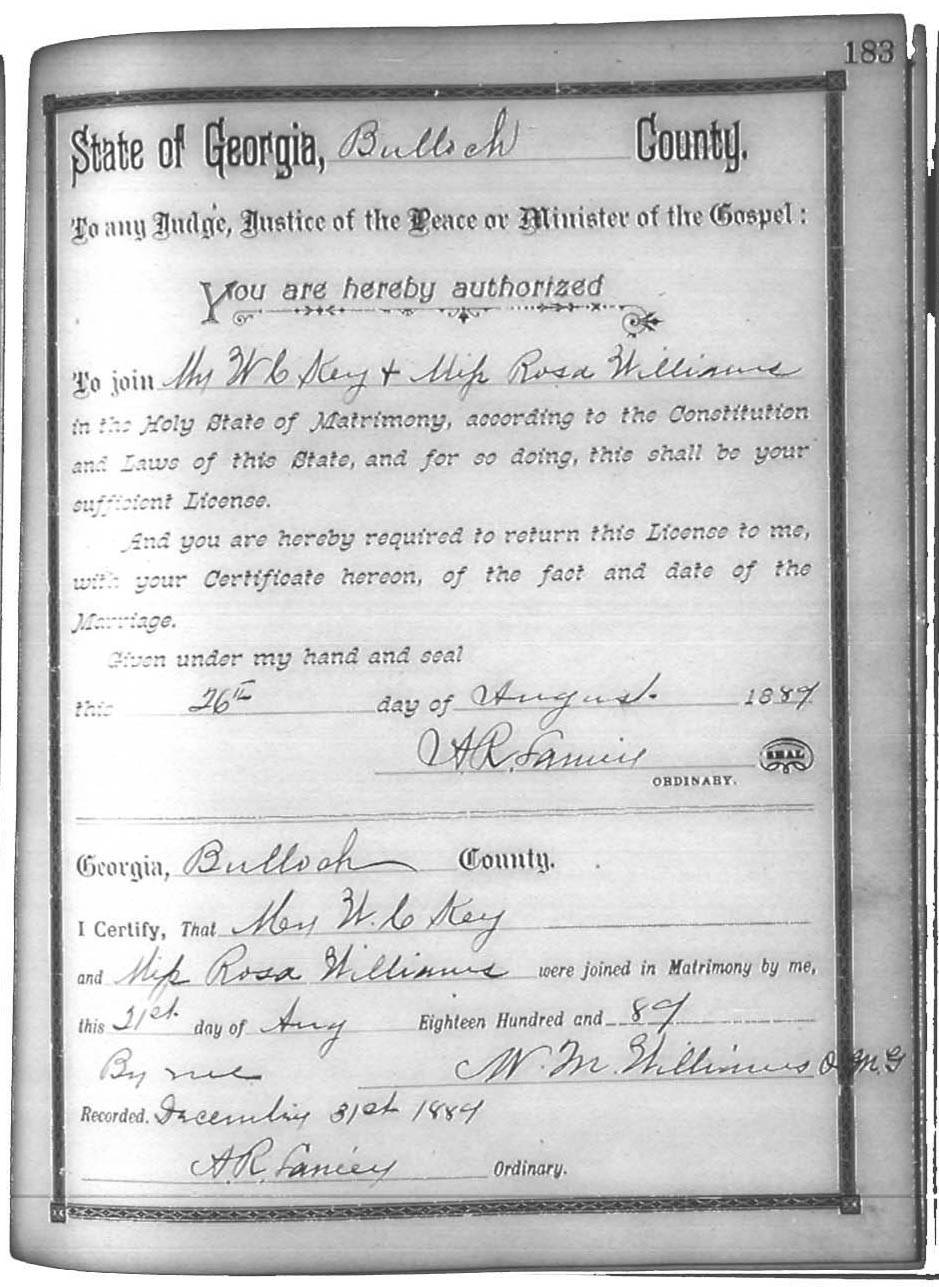 183
State of Georgia, Bulloch County.
To any Judge, Justice of the Peace or Minister of the Gospel:
You are hereby authorized
To join Mr W C Key + Miss Rosa Williams
in the Holy State of Matrimony, according to the Constitution
and Laws of this State, and for so doing, this shall be your
sufficient License.
And you are hereby required to return this License to me,
with your Certificate hereon, of the fact and date of the
Marriage.
Given under my hand and seal
this 26th day of August 1889
A.R. Lanier SEAL
ORDINARY.
Georgia, Bulloch County.
I Certify, That Mr W. C Key
and Miss Rosa Williams were joined in Matrimony by me,
this 31st day of Aug Eighteen Hundred and 89
By me W. M. Williams O M.G
Recorded. December 31st 1889
A.R. Lanier Ordinary.